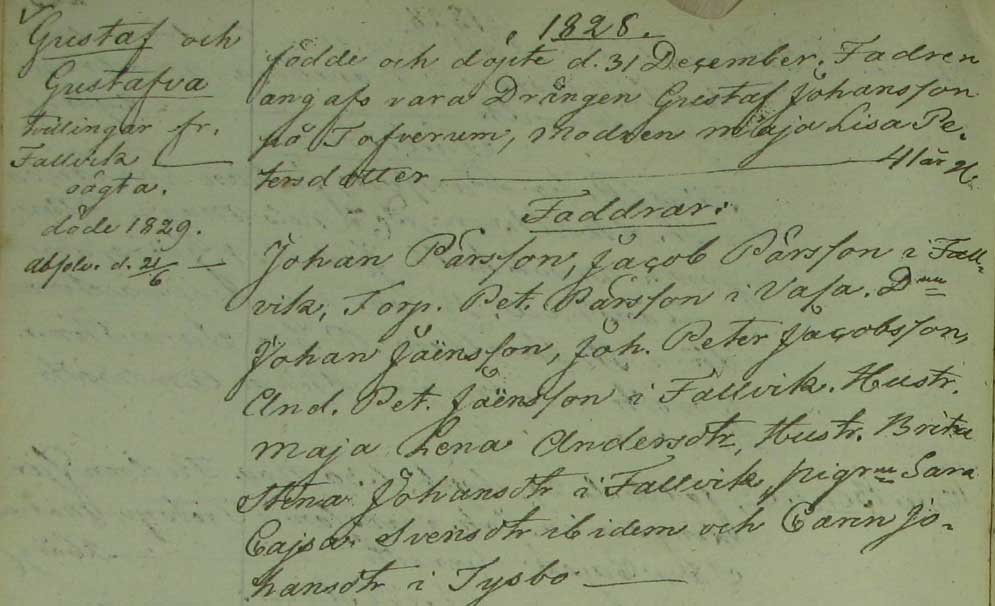 Gustaf och
Gustafva
tvillingar fr.
Fallvik
oägta.
döde 1829.
absolv. d. 21/6
1828.
födde och döpte d. 31 December. Fadren
angafs vara Drängen Gustaf Johansson
på Tofverum, modren Maja Lisa Pe-
tersdotter 41 år
Faddrar:
Johan Pärsson, Jacob Pärsson i Fall-
vik, Torp. Pet. Pärsson i Vasa. Dnn
Johan Jäensson, Joh. Peter Jacobsson,
And. Pet. Jäensson i Fallvik. Hustr.
Maja Lena Andersdtr, Hustr. Brita
Stina Johansdtr i Fallvik, pigrnn Sara
Cajsa Svensdtr ibidem och Carin Jo-
hansdtr i Tysbo